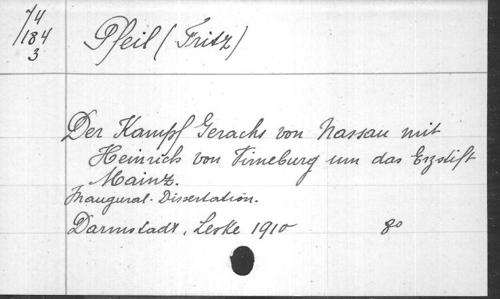 74
184
3
Pfeil (Fritz)
Der Kampf Gerachs von Nassau mit
Heinrich von Virneburg um das Erzstift
Mainz.
Inaugural-Dissertation.
Darmstadt, Leske 1910 8o